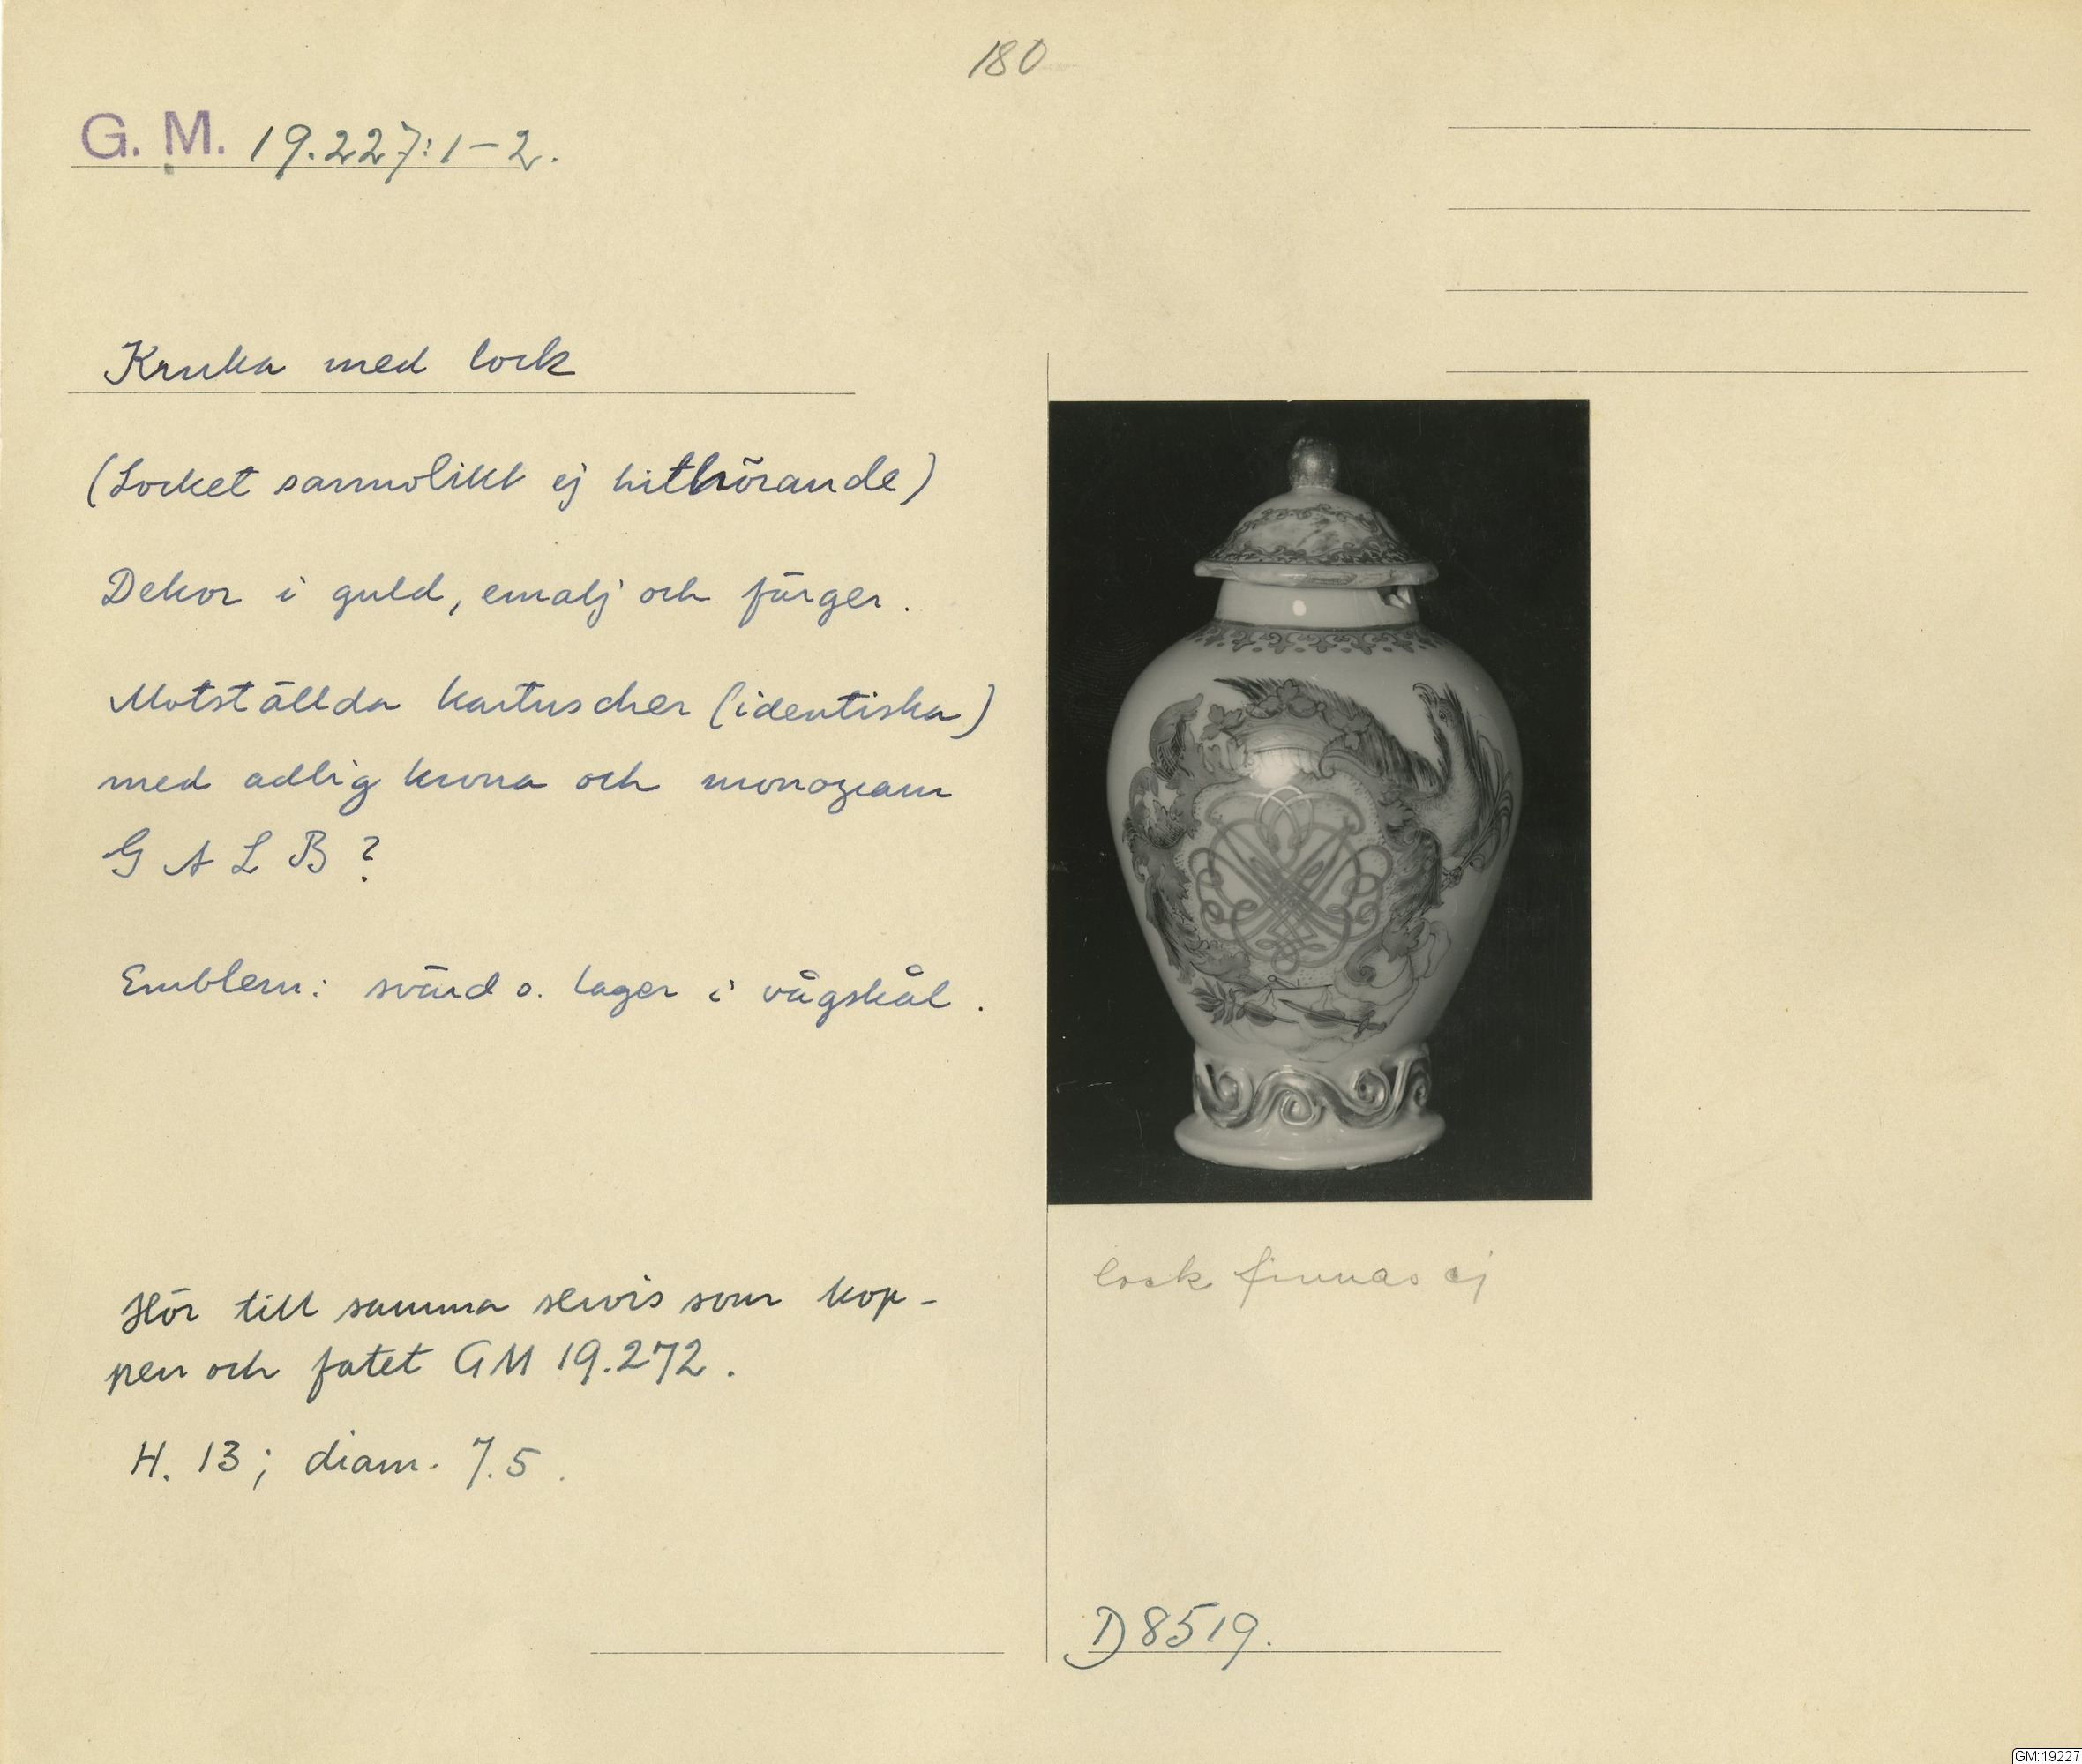 180
G. M. 19.227:1-2.
Kruka med lock
(Locket sannolikt ej hithörande)
Dekor i guld, emalj och färger.
Motställda kartuscher (identiska)
med adlig krona och monogram
G A L B ?
Emblem: svärd o. lager i vågskål.
Hör till samma servis som kop-
pen och fatet GM 19.272.
H. 13; diam. 7.5.
lock finnas ej
D 8519.
GM:19227